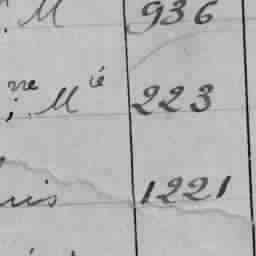 M 936
ne Mié 223
uis 1221